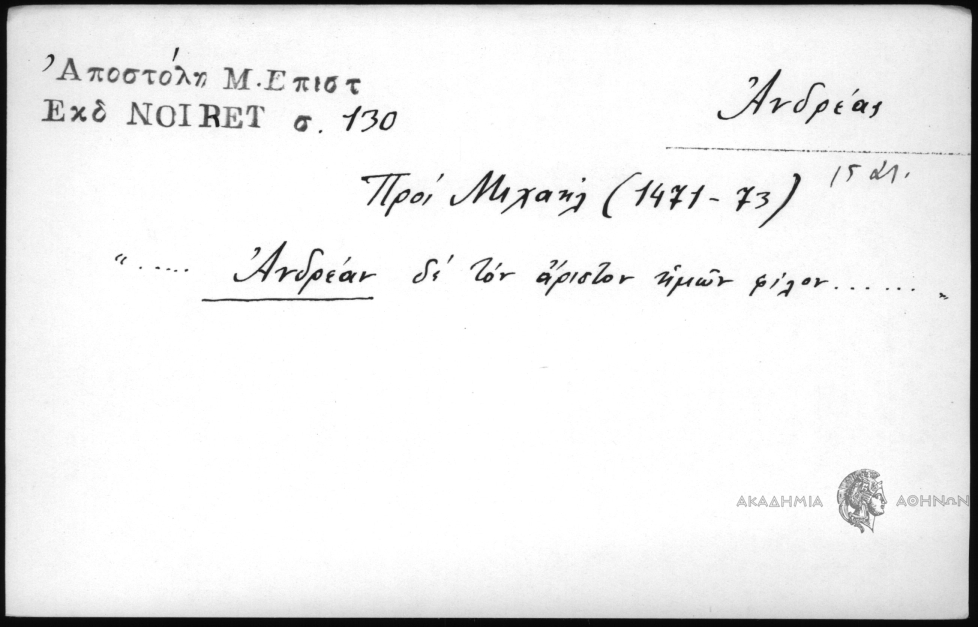 Ἀποστόλη Μ. Επιστ
Εκδ NOIRET σ. 130
Ἀνδρέας
15 αἰ.
Πρός Μιχαήλ (1471-73)
"...... Ἀνδρέαν δέ τόν ἄριστον ἡμῶν φίλον......."
ΑΚΑΔΗΜΙΑ ΑΘΗΝΩΝ